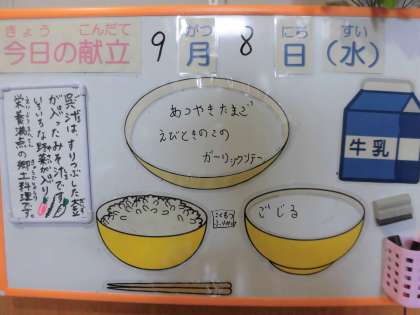 きょう こんだて
今日の献立
9 月 8 日 (水)
がつ
にち すい
あつやきたまご
えびときのこの
ガーリックソテー
ごじる
牛乳
呉汁は、すりつぶした大豆
が入ったみそ汁です。
いろいろな野菜が入り、
栄養満点の郷土料理です。